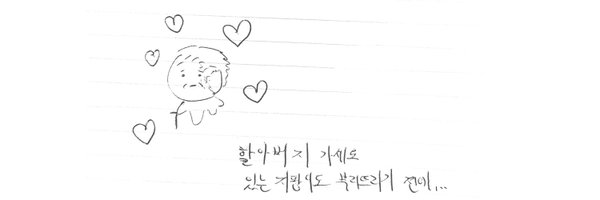 할아버지 가세요
있는 지팡이도 부러뜨리기 전에...